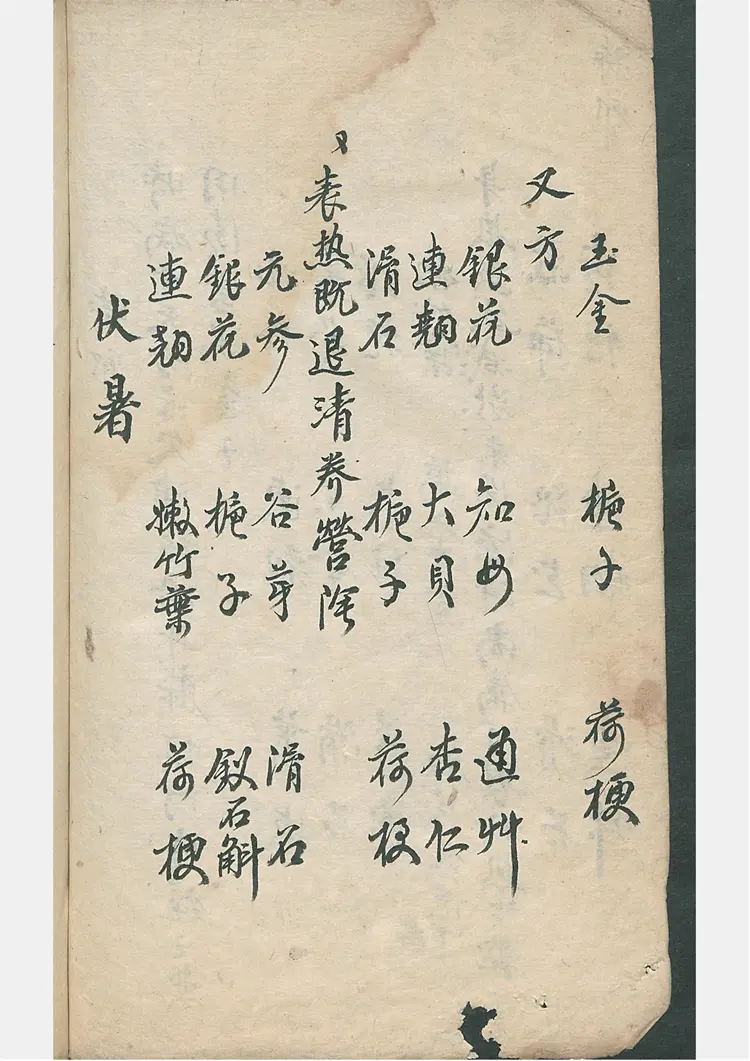 玉金 梔子 荷梗
又方
銀花 知母 通艸
連翹 大貝 杏仁
滑石 梔子 荷梗
又
表热既退清养營陰
元参 谷芽 滑石
銀花 梔子 釵石斛
連翹 嫩竹葉 荷梗
伏暑